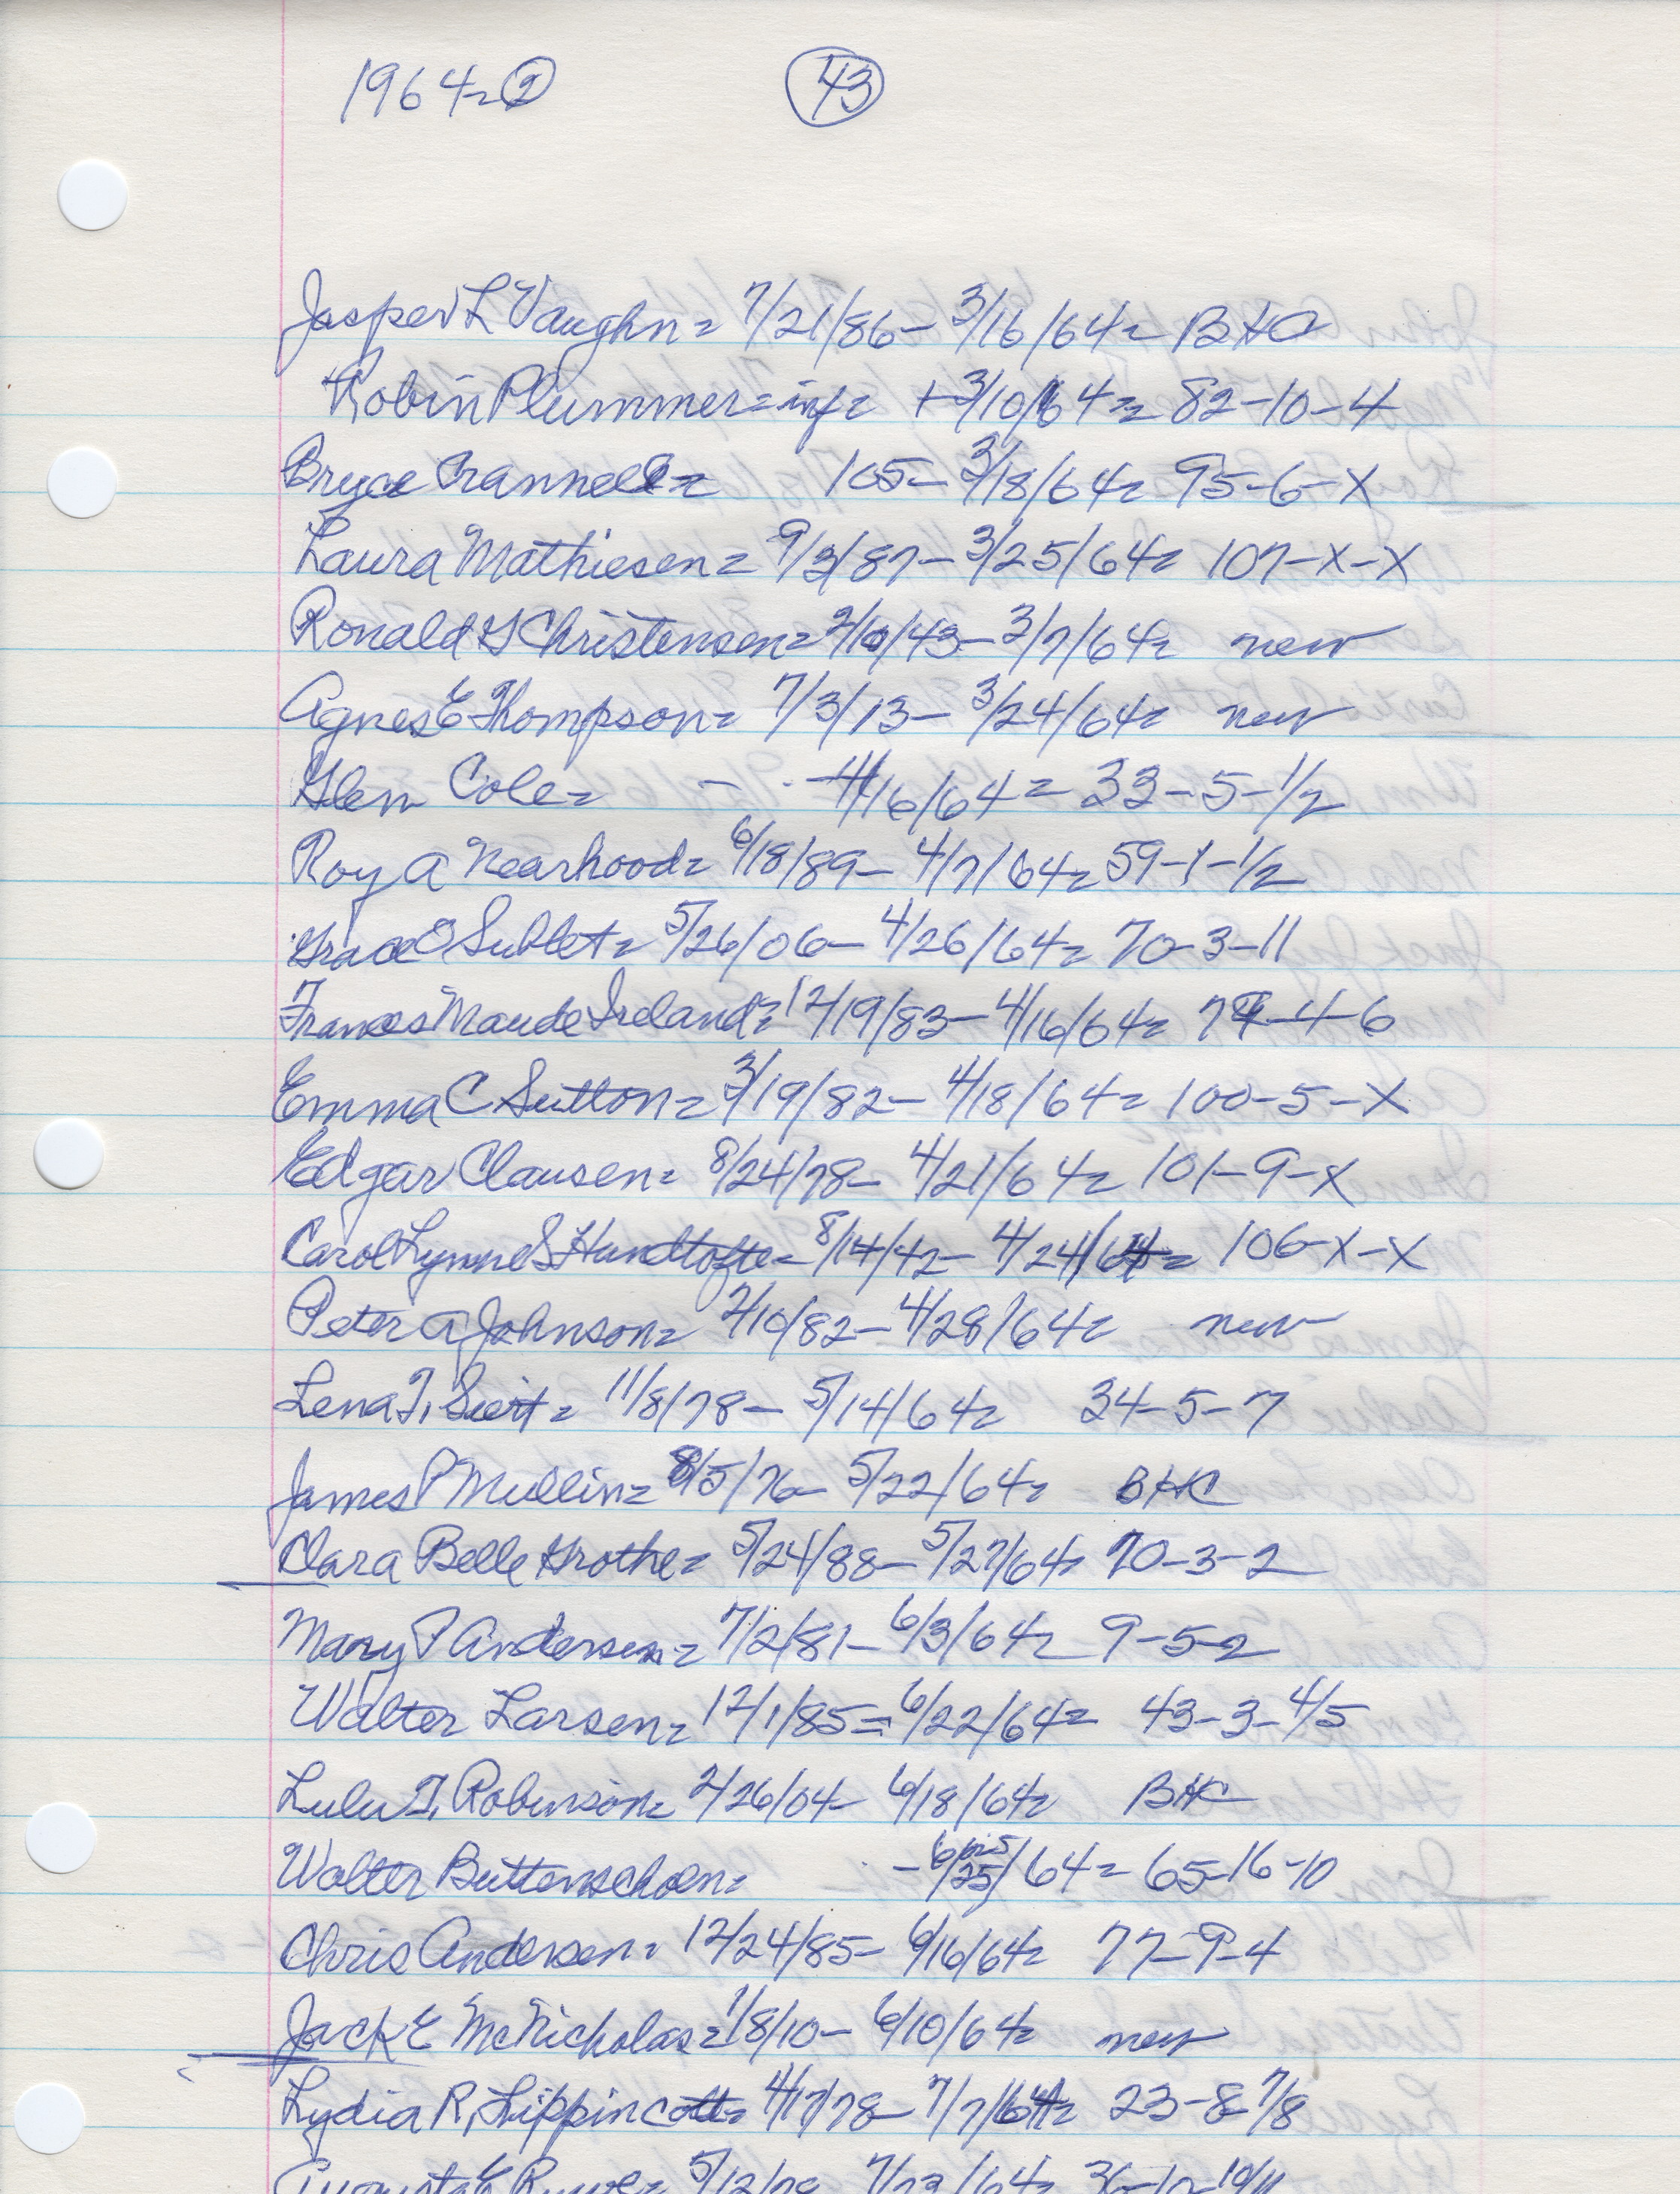 1964- ② ㊸
Jasper L Vaughn= 7/21/86- 3/16/64= BHC
Robin Plummer= inf= + 3/10/64= 82-10-4
Bryce Crannell= 105- 3/18/64= 95-6-X
Laura Mathiesen= 9/3/87- 3/25/64= 107-X-X
Ronald G Christensen= 2/10/43- 3/7/64= new
Agnes E Thompson= 7/3/13- 3/24/64= new
Glen Cole= - - 4/16/64= 33-5-1/2
Roy A Nearhood= 6/18/89- 4/7/64= 59-1-1/2
Grace O Sublet= 5/26/06- 4/26/64= 70-3-11
Frances Maude Ireland= 12/19/83- 4/16/64= 74-4-6
Emma C Sutton= 3/19/82- 4/18/64= 100-5-X
Edgar Clausen= 8/24/78- 4/21/64= 101-9-X
Carol Lynne S Hundtofte= 8/14/42- 4/24/64= 106-X-X
Peter A Johnson= 2/10/82- 4/28/64= new
Lena T. Siert= 11/8/78- 5/14/64= 34-5-7
James P Mullin= 8/5/76- 5/22/64= BHC
Clara Belle Grothe= 5/24/88- 5/27/64= 70-3-2
Mary P Andersen= 7/2/81- 6/3/64= 9-5-2
Walter Larsen= 12/1/85= 6/22/64= 43-3-4/5
Lulu T. Robinson= 2/26/04- 6/18/64= BHC
Walter Buttenschoen= - 6/25/64= 65-16-10
Chris Andersen= 12/24/85- 6/16/64= 77-9-4
Jack E McNicholas= 1/8/10- 6/10/64= new
Lydia R. Lippincott= 4/17/78- 7/7/64= 23-8-7/8